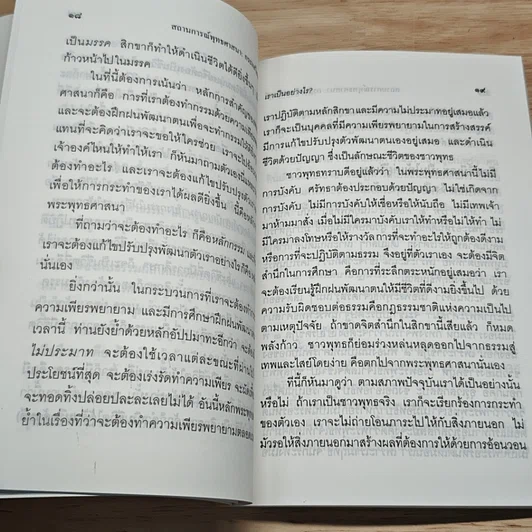 ๑๘
สถานการณ์พุทธศาสนา
เป็นมรรค สิกขาก็ทำให้ดำเนินชีวิตได้ดียิ่งขึ้น
ก้าวหน้าไปในมรรค
ในที่นี้ต้องการเน้นว่า หลักการสำคัญ
ศาสนา ก็คือ การที่เราต้องทำกรรมด้วยความเพียร
และจะต้องฝึกฝนพัฒนาตนเพื่อจะทำกรรมให้ได้ผล
แทนที่จะคิดว่าเราจะขอให้ใครช่วย เราจะไป
เจ้าองค์ไหนให้ทำให้เรา ก็หันมาถามตัวเอง
ต้องทำอะไร และเราจะต้องแก้ไขปรับปรุง
เพื่อให้การกระทำของเราได้ผลดียิ่งขึ้น นี้คือ
พระพุทธศาสนา
ที่ถามว่าจะต้องทำอะไร ก็คือหลักกรรม
เราจะต้องแก้ไขปรับปรุงพัฒนาตัวเราอย่างไรก็คือ
นั่นเอง
ยิ่งกว่านั้น ในกระบวนการที่เราจะต้อง
ความเพียรพยายาม และมีการศึกษาฝึกฝนพัฒนา
เวลานี้ ท่านยังย้ำด้วยหลักอัปปมาทะอีกว่า จะต้อง
ไม่ประมาท จะต้องใช้เวลาแต่ละขณะที่ผ่านไป
ประโยชน์ที่สุด จะต้องเร่งรัดทำความเพียร จะผัด
จะทอดทิ้งปล่อยปละละเลยไม่ได้ อันนี้หลักพระ
ย้ำในเรื่องที่ว่าจะต้องทำความเพียรพยายามตลอด
เราเป็นอย่างไร?
๑๙
เราปฏิบัติตามหลักสิกขาและมีความไม่ประมาทอยู่เสมอแล้ว
เราก็จะเป็นบุคคลที่มีความเพียรพยายามในการสร้างสรรค์
มีการแก้ไขปรับปรุงพัฒนาตนเองอยู่เสมอ และดำเนิน
ชีวิตด้วยปัญญา ซึ่งเป็นลักษณะชีวิตของชาวพุทธ
ชาวพุทธทราบดีอยู่แล้วว่า ในพระพุทธศาสนานี้ไม่มี
การบังคับ ศรัทธาต้องประกอบด้วยปัญญา ไม่ใช่เกิดจาก
การบังคับ ไม่มีการบังคับให้เชื่อหรือให้นับถือ ไม่มีเทพเจ้า
มาห้ามมาสั่ง เมื่อไม่มีใครมาบังคับเราให้ทำหรือไม่ให้ทำ ไม่
มีใครมาลงโทษหรือให้รางวัล การที่จะทำอะไรให้ถูกต้องดีงาม
หรือการที่จะปฏิบัติตามธรรม จึงอยู่ที่ตัวเราเอง จะต้องมีจิต
สำนึกในการศึกษา คือการที่ระลึกตระหนักอยู่เสมอว่า เรา
จะต้องเรียนรู้ฝึกฝนพัฒนาตนให้มีชีวิตที่ดีงามยิ่งขึ้นไป ด้วย
ความรับผิดชอบต่อธรรมคือกฎธรรมชาติแห่งความเป็นไป
ตามเหตุปัจจัย ถ้าขาดจิตสำนึกในสิกขานี้เสียแล้ว ก็หมด
พลังก้าว ชาวพุทธก็ย่อมร่วงหล่นหลุดออกไปจากธรรมสู่
เทพและไสย์โดยง่าย คือตกไปจากพระพุทธศาสนานั่นเอง
ที่นี้ก็หันมาดูว่า ตามสภาพปัจจุบันเราได้เป็นอย่างนั้น
หรือไม่ ถ้าเราเป็นชาวพุทธจริง เราก็จะเรียกร้องการกระทำ
ของตัวเอง เราจะไม่ถ่ายโอนภาระไปให้กับสิ่งภายนอก ไม่
มัวรอให้สิ่งภายนอกมาสร้างผลที่ต้องการให้ด้วยการอ้อนวอน